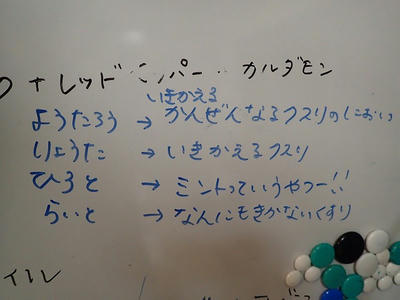 レッドペッパー・・カルダモン
いきかえる
ようたろう → かんぜんなるクスリのにおい
りょうた → いきかえるクスリ
ひろと → ミントっていうやつー!!
らいと → なんにもきかないくすり